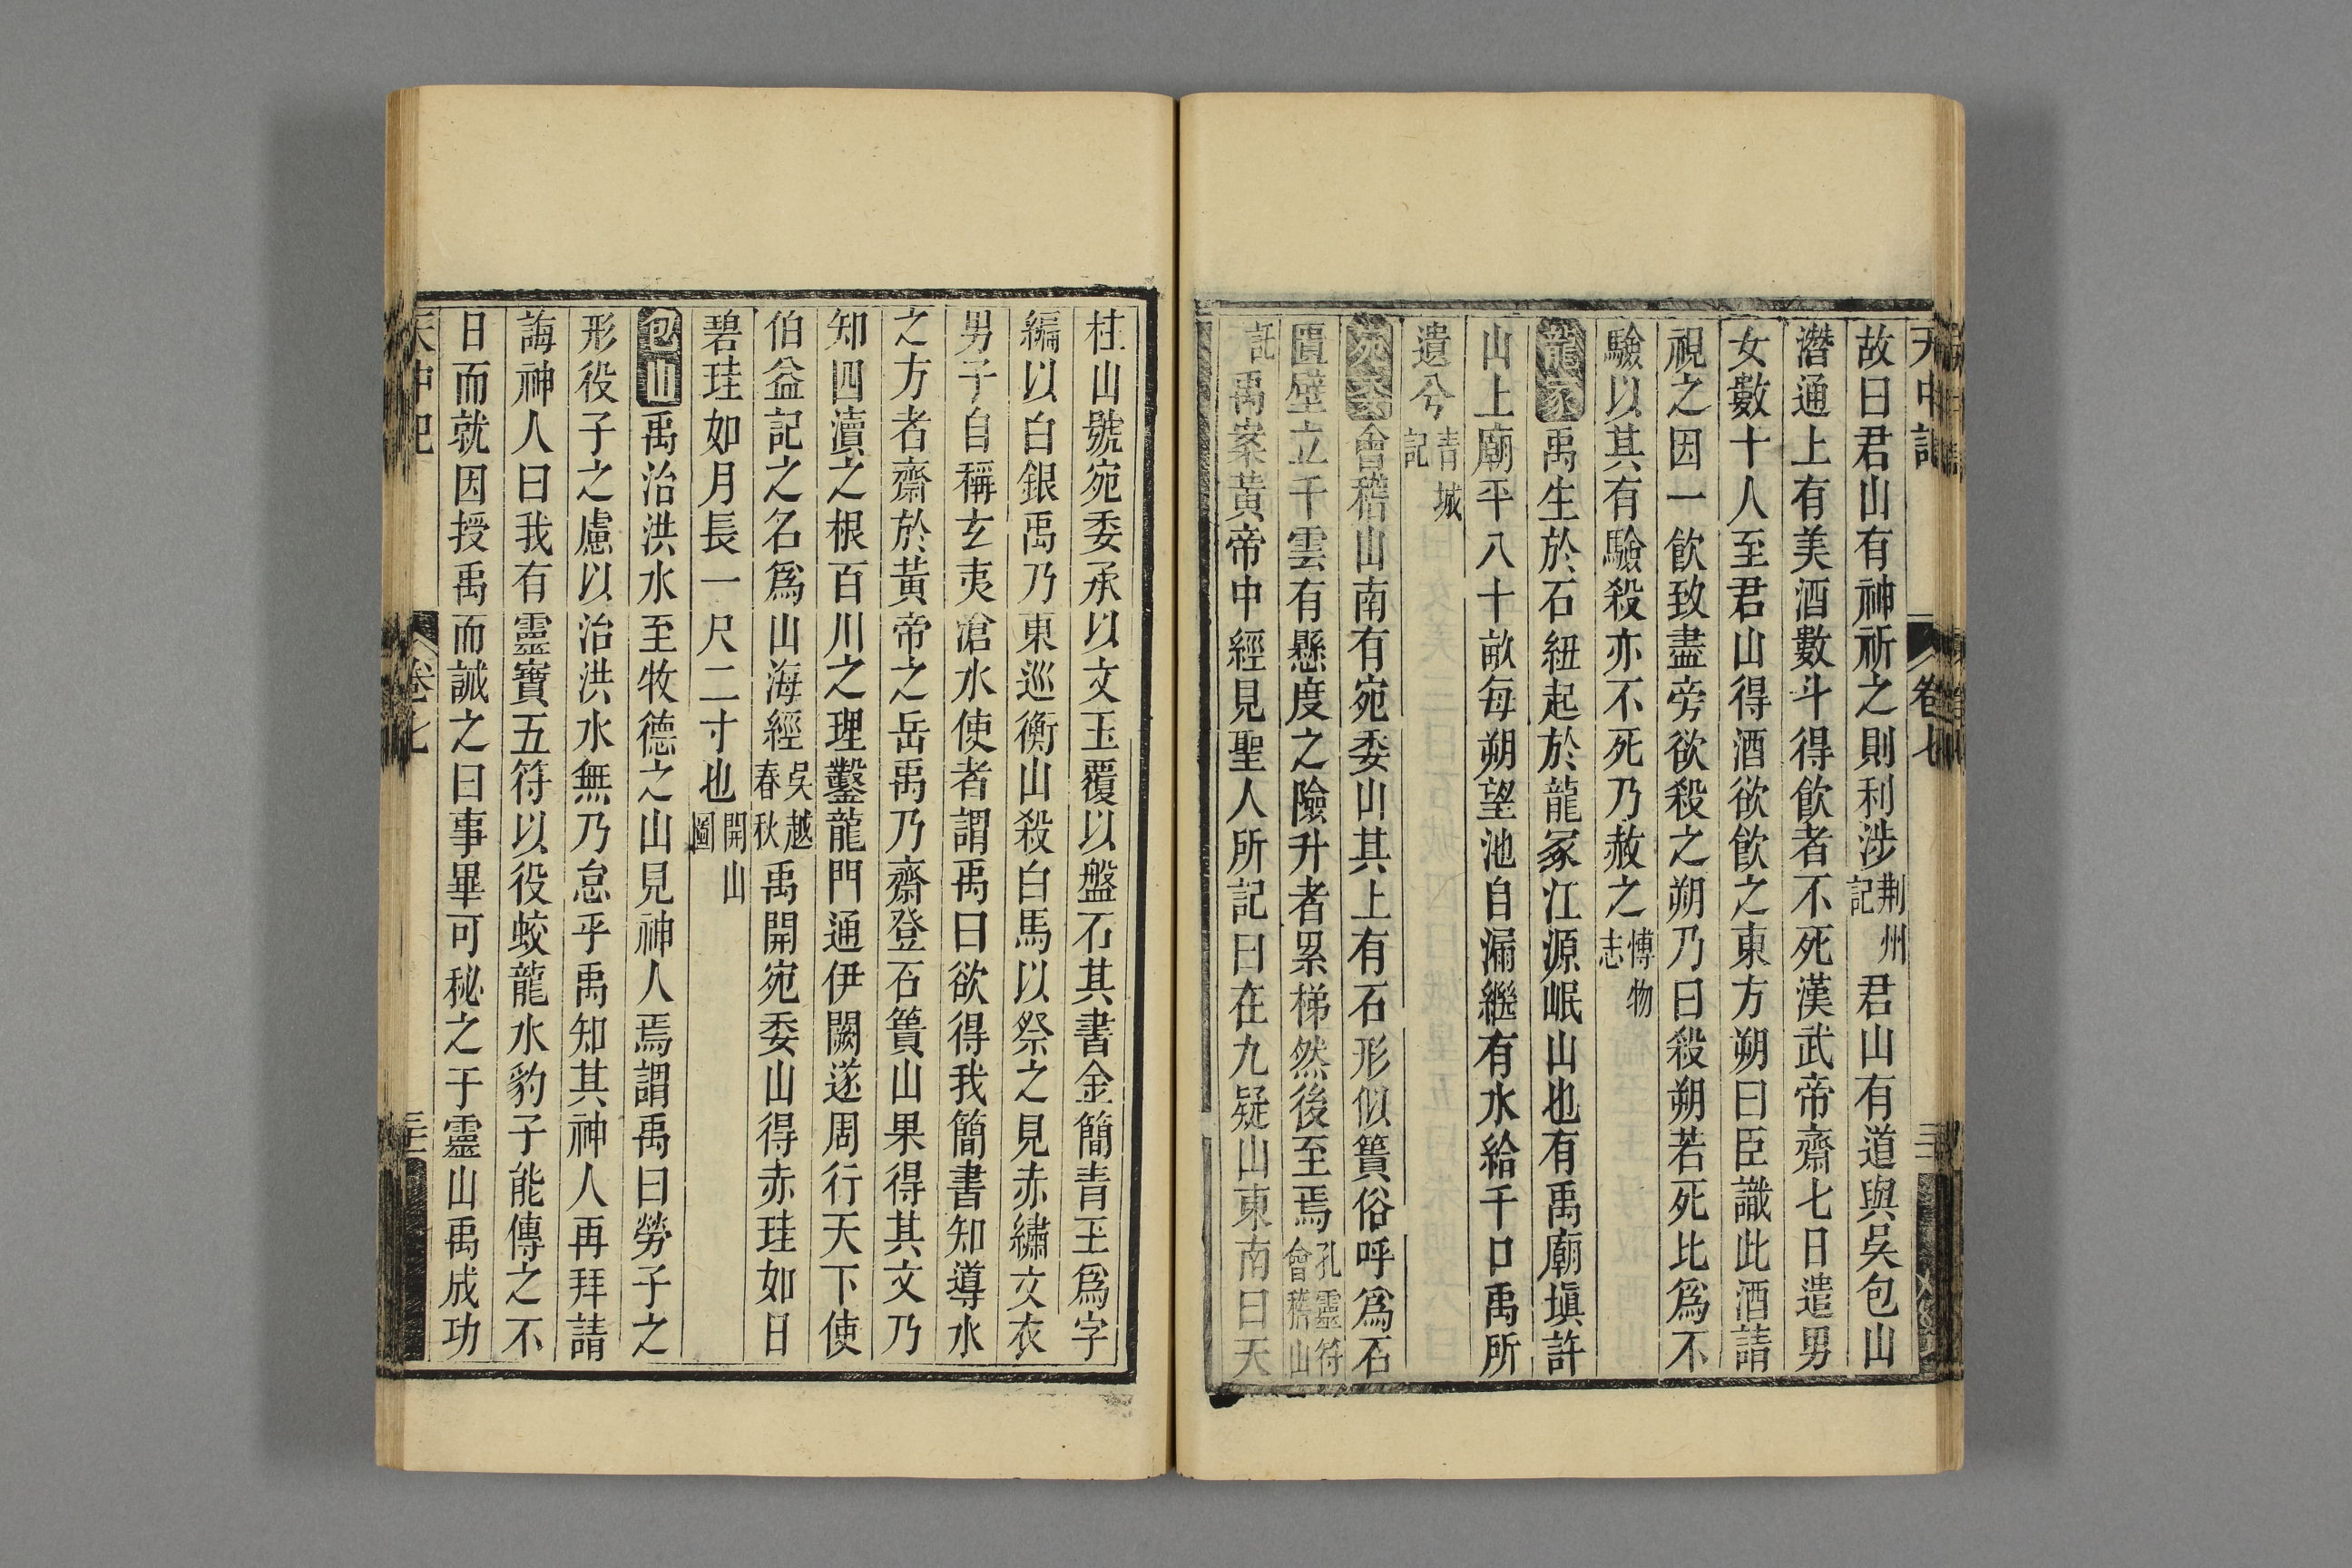 天中記 卷七
故曰君山有神祈之則利涉荆州記君山有道與吳包山
潛通上有美酒數斗得飲者不死漢武帝齋七日遣男
女數十人至君山得酒欲飲之東方朔曰臣識此酒請
視之因一飲致盡旁欲殺之朔乃曰殺朔若死比爲不
驗以其有驗殺亦不死乃赦之博物志
龍冢禹生於石紐起於龍冢江源岷山也有禹廟塡許
山上廟平八十畝每朔望池自漏繼有水給千口禹所
遺兮青城記
宛委會稽山南有宛委山其上有石形似簣俗呼爲石
匱壁立千雲有懸度之險升者累梯然後至焉孔靈符會稽山
記禹案黄帝中經見聖人所記曰在九疑山東南曰天
柱山號宛委承以文玉覆以盤石其書金簡青玉爲字
編以白銀禹乃東巡衡山殺白馬以祭之見赤繡文衣
男子自稱玄夷滄水使者謂禹曰欲得我簡書知導水
之方者齋於黃帝之岳禹乃齋登石簣山果得其文乃
知四瀆之根百川之理鑿龍門通伊闕遂周行天下使
伯益記之名爲山海經吳越春秋禹開宛委山得赤珪如日
碧珪如月長一尺二寸也開山圖
包山禹治洪水至牧德之山見神人焉謂禹曰勞子之
形役子之慮以治洪水無乃怠乎禹知其神人再拜請
誨神人曰我有靈寶五符以役蛟龍水豹子能傳之不
日而就因授禹而誡之曰事畢可秘之于靈山禹成功
天中記 卷七